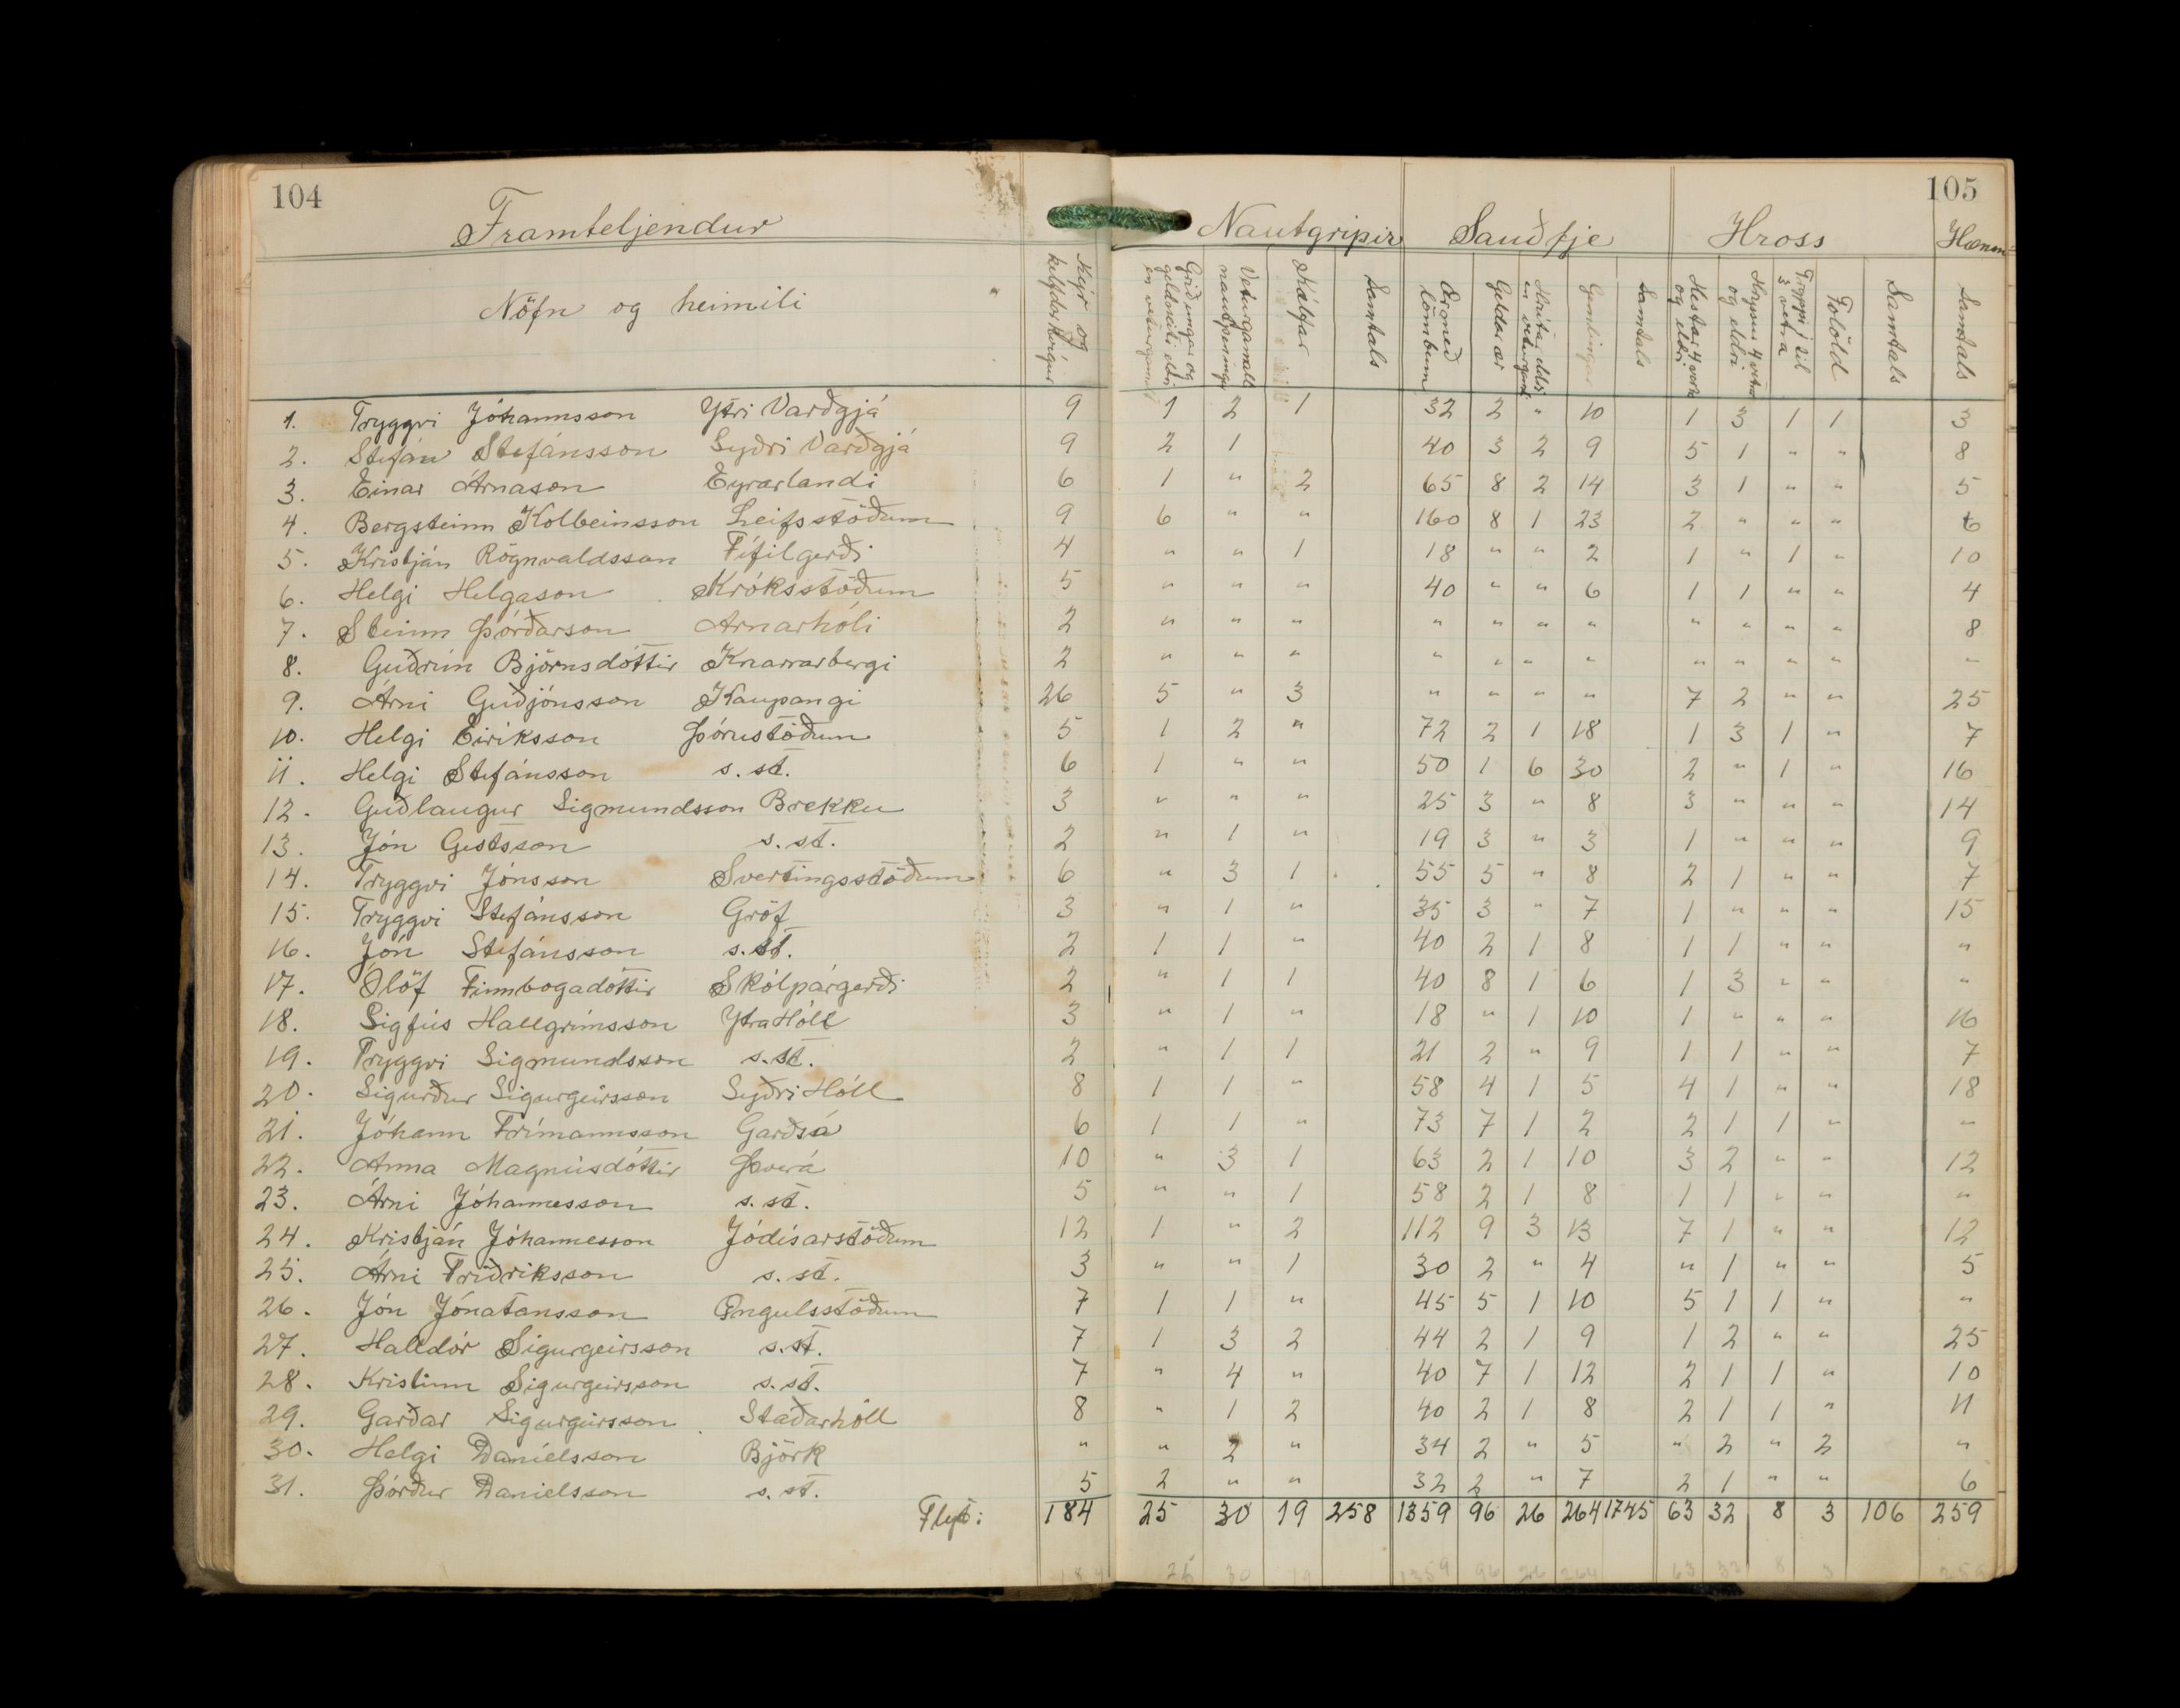 104
105
Framteljendur
Nautgripir Sauðfje Hross Hænsn
Nöfn og heimili
Kýr og kelfdar kvígur
Griðungar og geldneyti eldri en veturgömul
Veturgamall nautpeningur
Kálfar
Samtals
Ær með lömbum
Geldar ær
Hrútar eldri en veturgamlir
Gemlingar
Samtals
Hestar 4 vetra og eldri
Hryssur 4 vetra og eldri
Tryppi 1 til 3 vetra
Folöld
Samtals
Samtals
1. Tryggvi Jóhannsson Ytri Varðgjá 9 1 2 1 32 2 " 10 1 3 1 1 3
2. Stefán Stefánsson Syðri Varðgjá 9 2 1 40 3 2 9 5 1 " " 8
3. Einar Árnason Eyrarlandi 6 1 " 2 65 8 2 14 3 1 " " 5
4. Bergsteinn Kolbeinsson Leifsstöðum 9 6 " " 160 8 1 23 2 " " " 6
5. Kristján Rögnvaldsson Fífilgerði 4 " " 1 18 " " 2 1 " 1 " 10
6. Helgi Helgason Króksstöðum 5 " " " 40 " " 6 1 1 " " 4
7. Steinn Þórðarson Arnarhóli 2 " " " " " " " " " " " 8
8. Guðrún Björnsdóttir Knarrarbergi 2 " " " " " " " " " " " "
9. Árni Guðjónsson Kaupangi 26 5 " 3 " " " " 7 2 " " 25
10. Helgi Eiríksson Þórustöðum 5 1 2 " 72 2 1 18 1 3 1 " 7
11. Helgi Stefánsson s. st. 6 1 " " 50 1 6 30 2 " 1 " 16
12. Guðlaugur Sigmundsson Brekku 3 " " " 25 3 " 8 3 " " " 14
13. Jón Gestsson s. st. 2 " 1 " 19 3 " 3 1 " " " 9
14. Tryggvi Jónsson Svertingsstöðum 6 " 3 1 55 5 " 8 2 1 " " 7
15. Tryggvi Stefánsson Gröf 3 " 1 " 35 3 " 7 1 " " " 15
16. Jón Stefánsson s. st. 2 1 1 " 40 2 1 8 1 1 " " "
17. Ólöf Finnbogadóttir Skólpárgerði 2 " 1 1 40 8 1 6 1 3 " " "
18. Sigfús Hallgrímsson Ytra Hóll 3 " 1 " 18 " 1 10 1 " " " 16
19. Tryggvi Sigmundsson s. st. 2 " 1 1 21 2 " 9 1 1 " " 7
20. Sigurður Sigurgeirsson Syðri Hóll 8 1 1 " 58 4 1 5 4 1 " " 18
21. Jóhann Frímannsson Garðsá 6 1 1 " 73 7 1 2 2 1 1 " "
22. Anna Magnúsdóttir Þverá 10 " 3 1 63 2 1 10 3 2 " " 12
23. Árni Jóhannesson s. st. 5 " " 1 58 2 1 8 1 1 " " "
24. Kristján Jóhannesson Jódísarstöðum 12 1 " 2 112 9 3 13 7 1 " " 12
25. Árni Friðriksson s. st. 3 " " 1 30 2 " 4 " 1 " " 5
26. Jón Jónatansson Öngulsstöðum 7 1 1 " 45 5 1 10 5 1 1 " "
27. Halldór Sigurgeirsson s. st. 7 1 3 2 44 2 1 9 1 2 " " 25
28. Kristinn Sigurgeirsson s. st. 7 " 4 " 40 7 1 12 2 1 1 " 10
29. Garðar Sigurgeirsson Staðarhóll 8 " 1 2 40 2 1 8 2 1 1 " 11
30. Helgi Daníelsson Björk " " 2 " 34 2 " 5 " 2 " 2 "
31. Þórður Daníelsson s. st. 5 2 " " 32 2 " 7 2 1 " " 6
Flyt: 184 25 30 19 258 1359 96 26 264 1745 63 32 8 3 106 259
184 25 30 19 1359 96 26 264 63 32 8 3 259